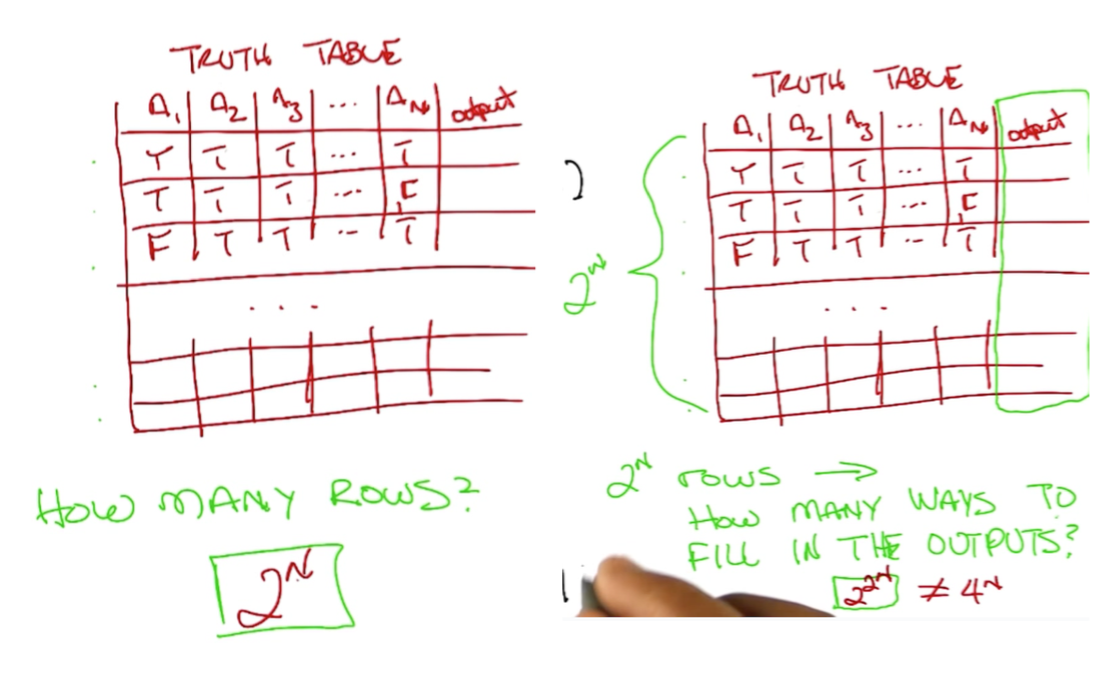 TRUTH TABLE
A₁ A₂ A₃ ... A_N output
T T T ... T
T T T ... F
F T T ... T
. . .
HOW MANY ROWS?
2^N
TRUTH TABLE
A₁ A₂ A₃ ... A_N output
T T T ... T
T T T ... F
F T T ... T
. . .
2^N
2^N rows →
HOW MANY WAYS TO
FILL IN THE OUTPUTS?
2^2^N ≠ 4^N